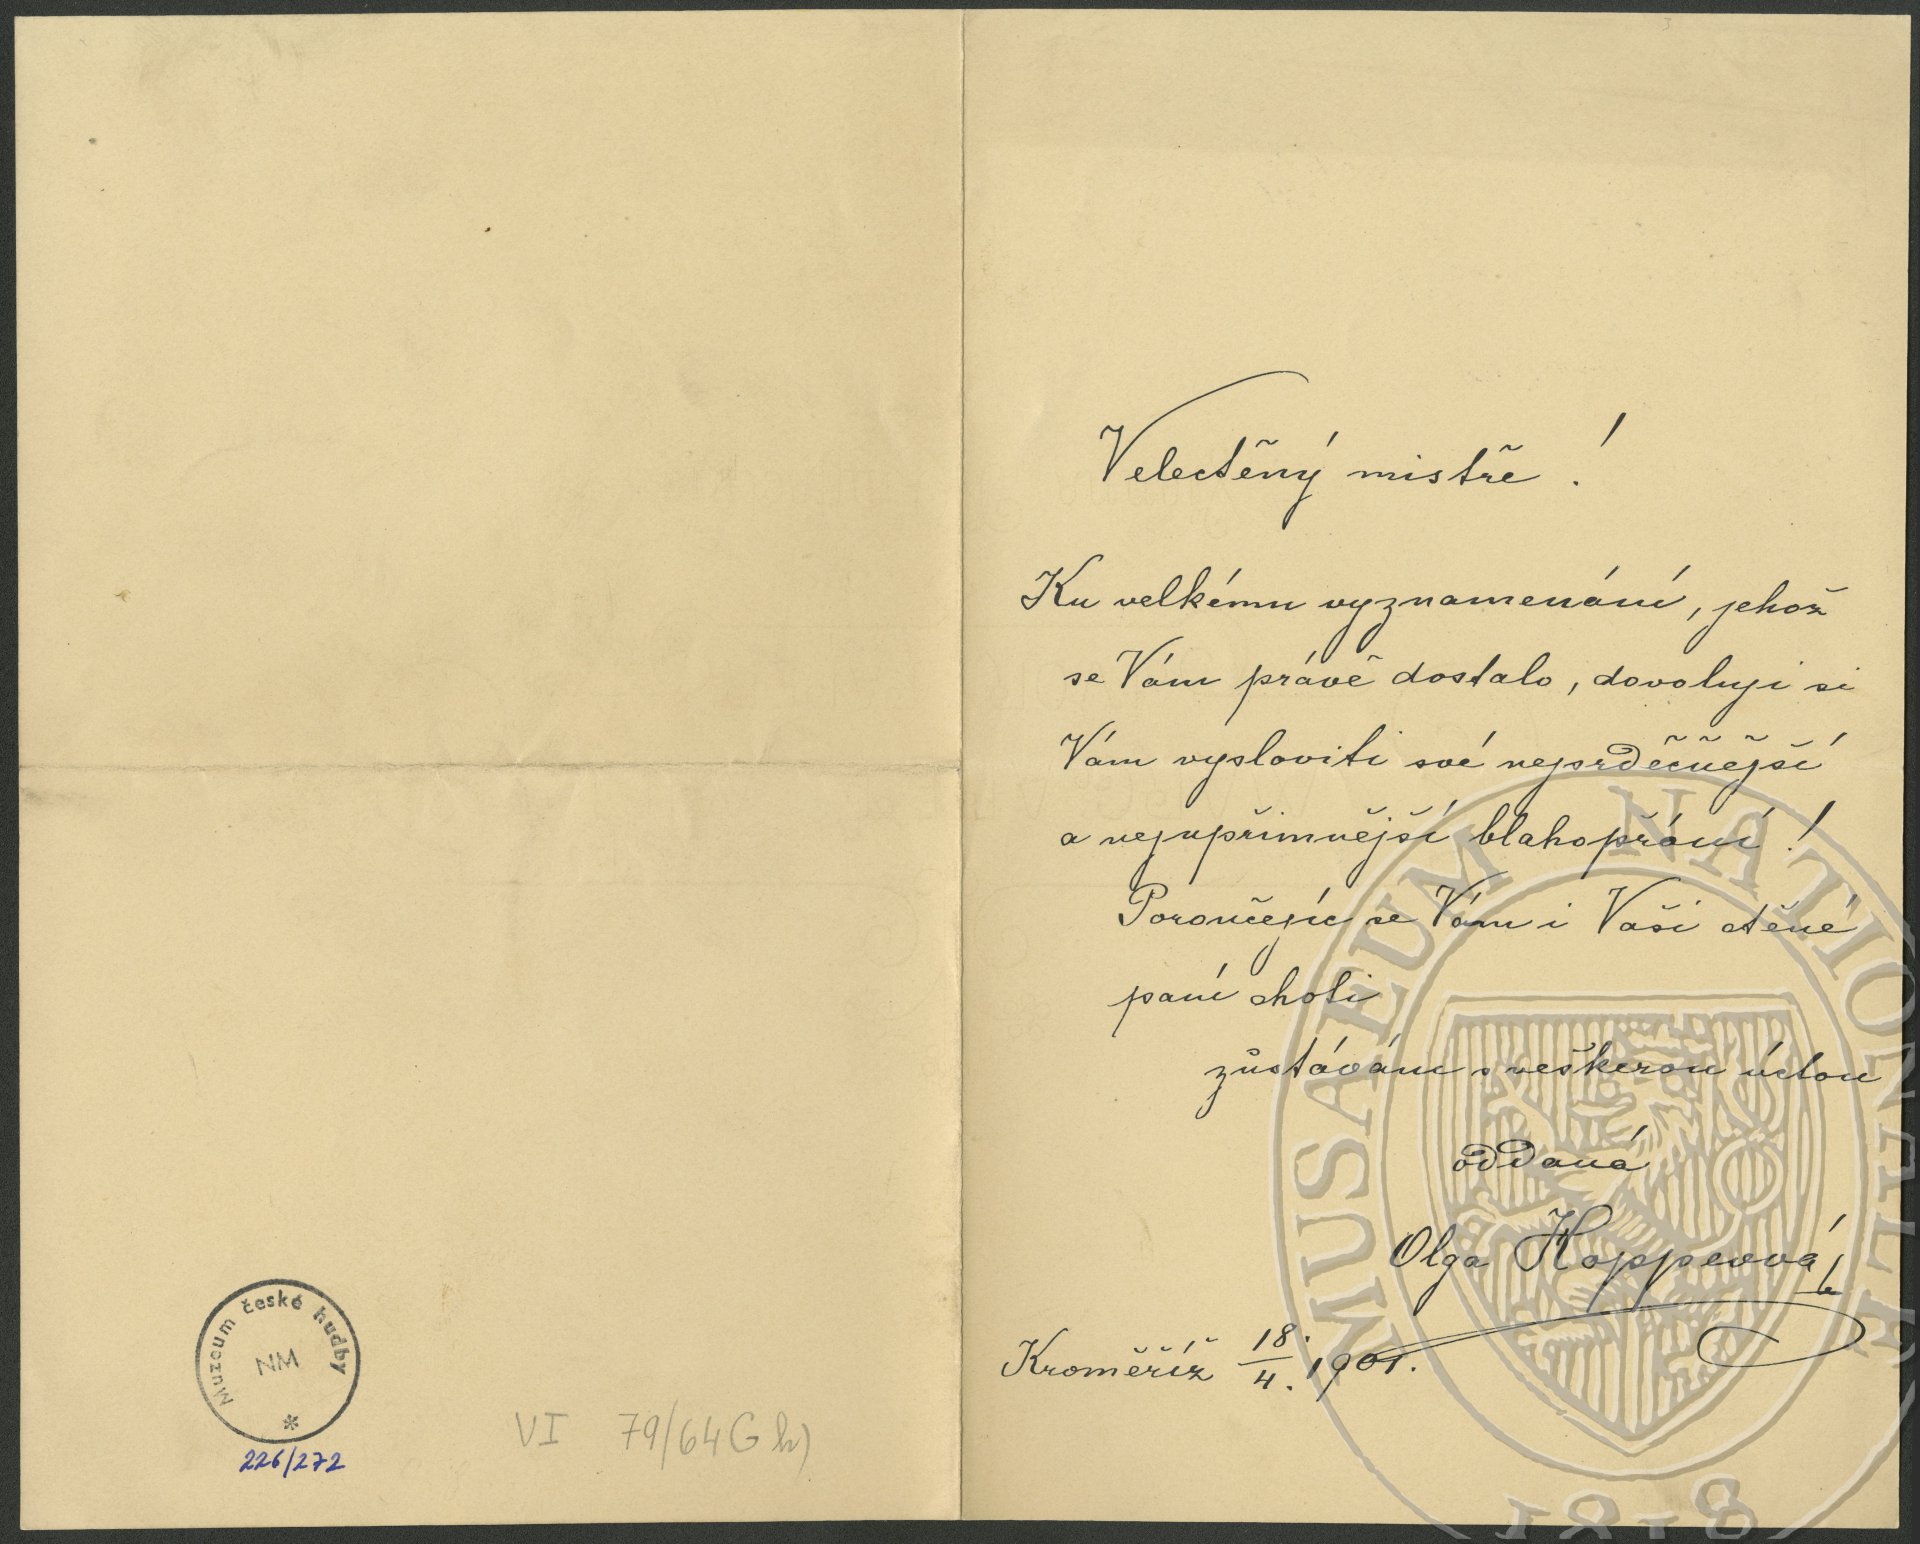 Muzeum české hudby
NM
*
226/272
VI 79/64 G h)
Velectěný mistře!
Ku velkému vyznamenání, jehož
se Vám právě dostalo, dovoluji si
Vám vysloviti své nejsrdečnější
a nejupřimnější blahopřání!
Poroučejíc se Vám i Vaší ctěné
paní choti
zůstávám s veškerou úctou
oddaná
Olga Hoppeová
Kroměříž 18./4. 1901.
MUSAEUM NATIONALE
1818